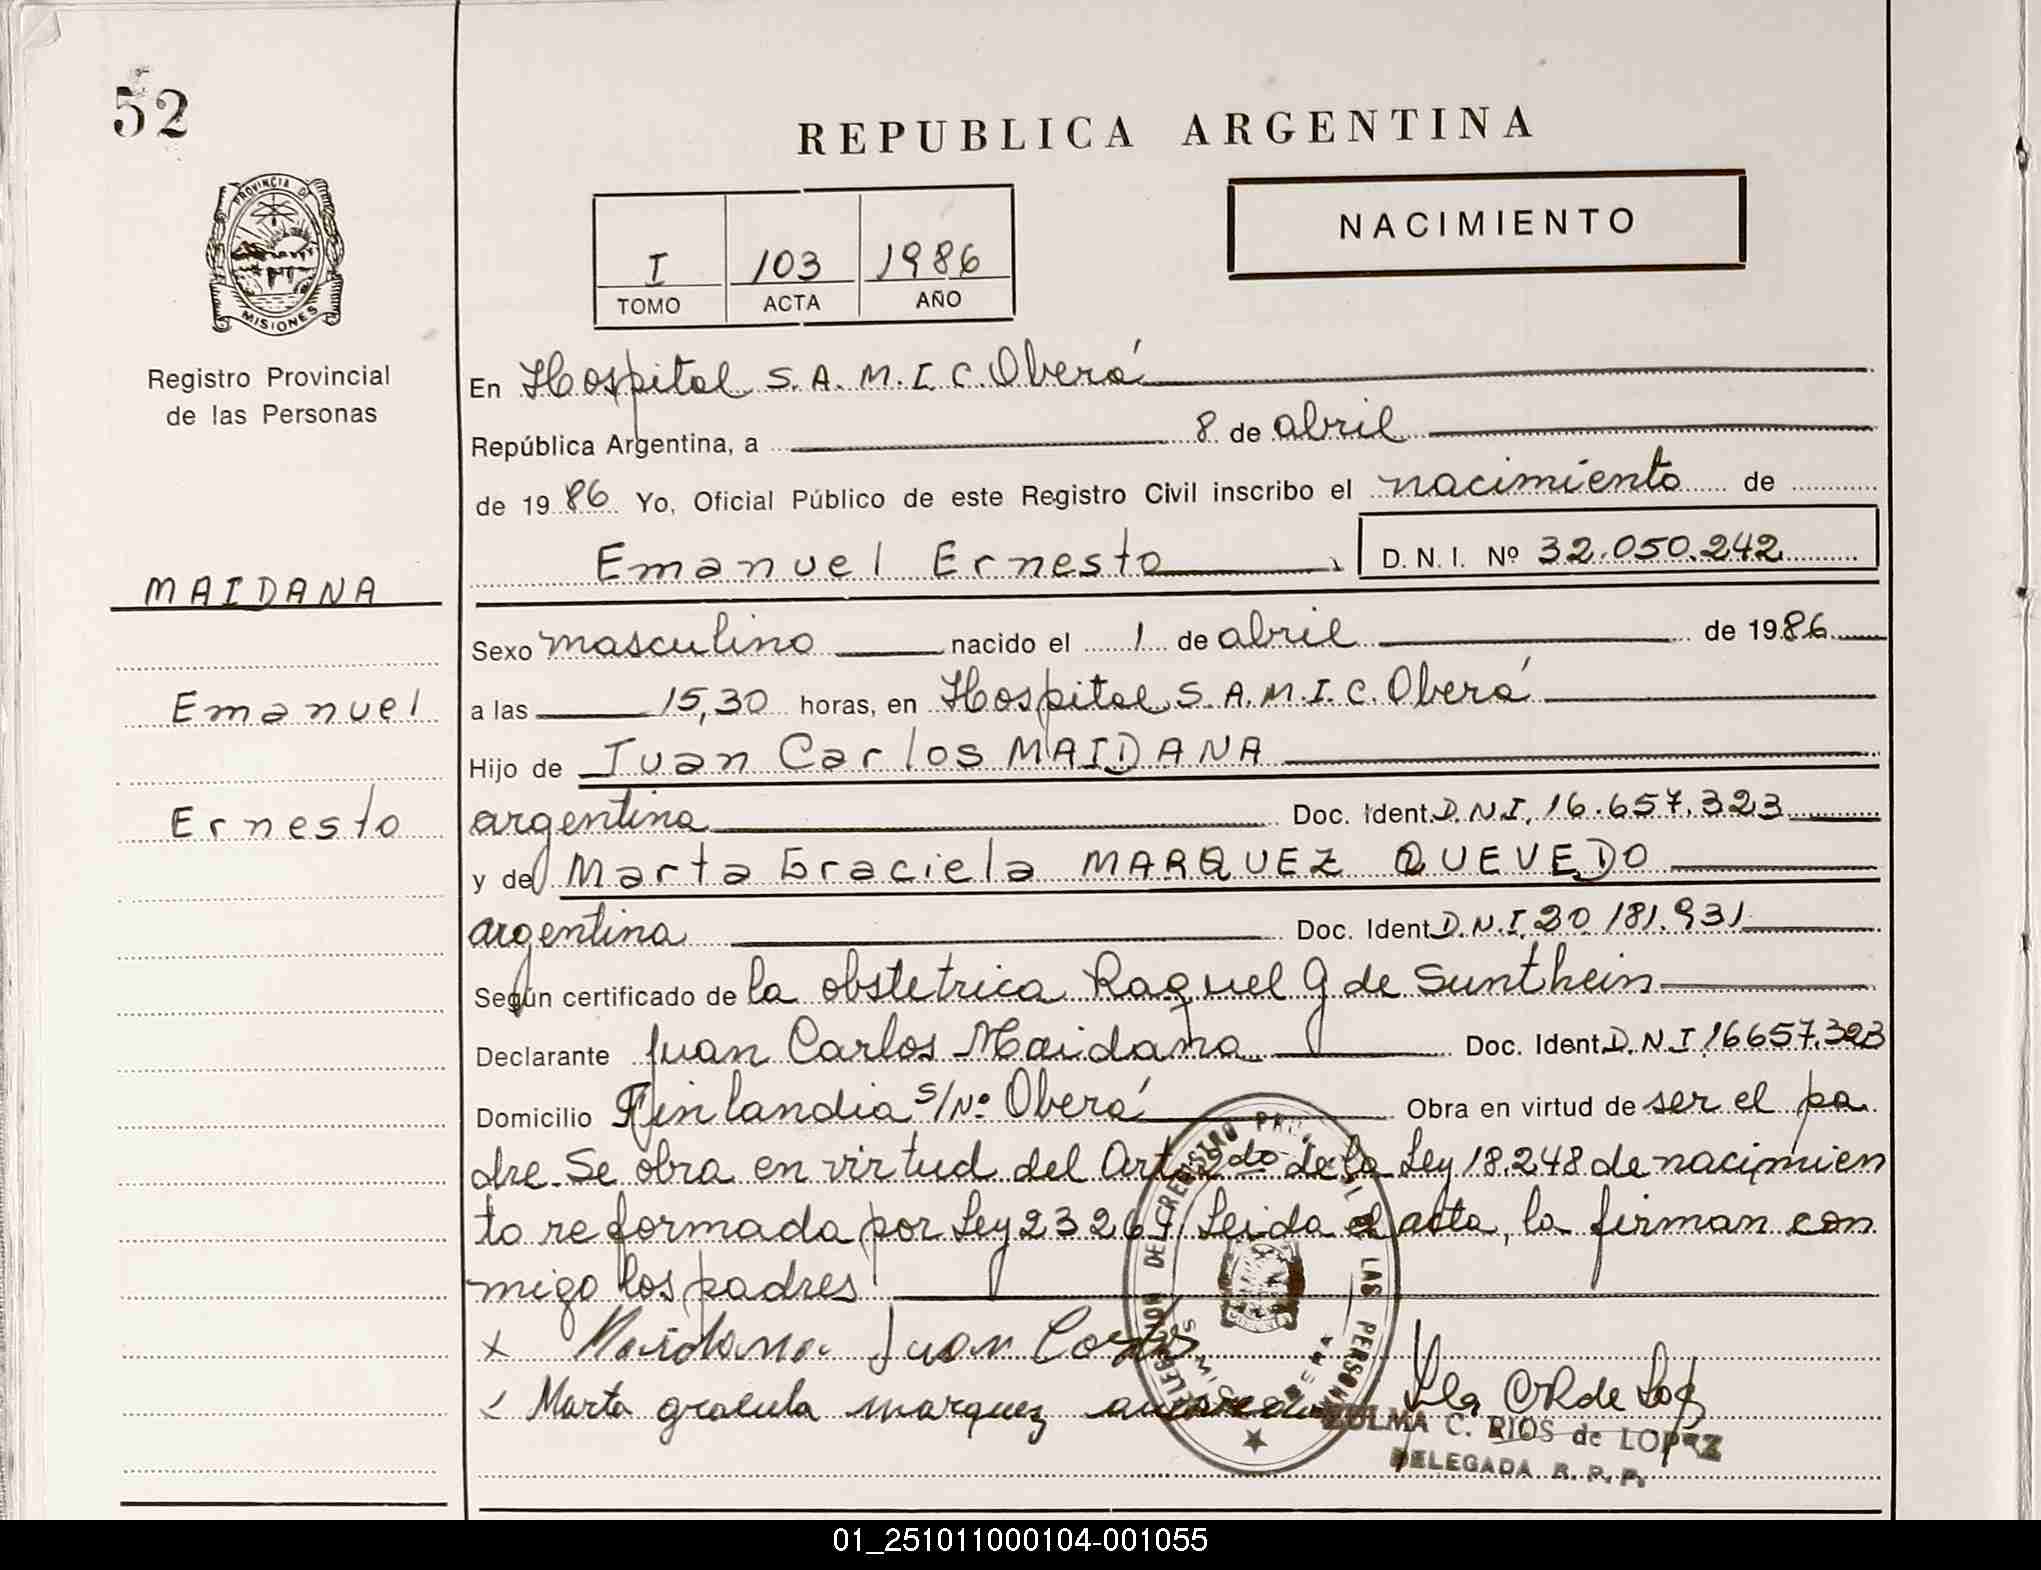 52
REPUBLICA ARGENTINA
PROVINCIA DE
MISIONES
I 103 1986
TOMO ACTA AÑO
NACIMIENTO
Registro Provincial
de las Personas
MAIDANA
Emanuel
Ernesto
En Hospital S.A.M.I.C. Oberá
República Argentina, a 8 de abril
de 1986 Yo, Oficial Público de este Registro Civil inscribo el nacimiento de
Emanuel Ernesto D.N.I. Nº 32.050.242
Sexo masculino nacido el 1 de abril de 1986
a las 15,30 horas, en Hospital S.A.M.I.C. Oberá
Hijo de Juan Carlos MAIDANA
argentina Doc. Ident. D.N.I. 16.657.323
y de Marta Graciela MARQUEZ QUEVEDO
argentina Doc. Ident. D.N.I. 20.181.931
Según certificado de la obstetrica Raquel G de Sunthein
Declarante Juan Carlos Maidana Doc. Ident. D.N.I. 16657.323
Domicilio Finlandia s/Nº Oberá Obra en virtud de ser el pa
dre. Se obra en virtud del Art. 2do de la Ley 18.248 de nacimien
to reformada por Ley 23264. Leida el acta, la firman con
migo los padres
x Maidana Juan Carlos
x Marta graciela marquez
ZULMA C. RIOS de LOPEZ
DELEGADA R.P.P.
01_251011000104-001055